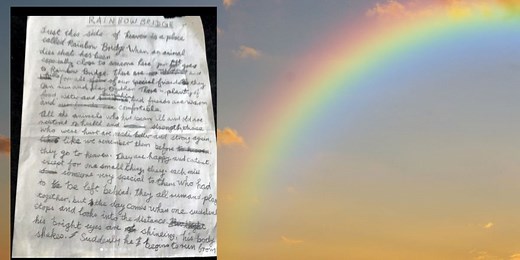 RAINBOW BRIDGE
Just this side of heaven is a place
called Rainbow Bridge. When an animal
dies that has been
especially close to someone here, goes
to Rainbow Bridge. There are and
for all of our special friends they
can run and play together. There plenty of
food water and and friends are warm
and comfortable.
All the animals who had been ill and old are
restored to health and
who were hurt are made better and strong again,
like we remember them before
they go to heaven. They are happy and content
except for one small thing, they each miss
someone very special to them who had
to be left behind. they all run and play
together, but the day comes when one suddenly
stops and looks into the distance.
his bright eyes are shining, his body
shakes. Suddenly he begins to run from